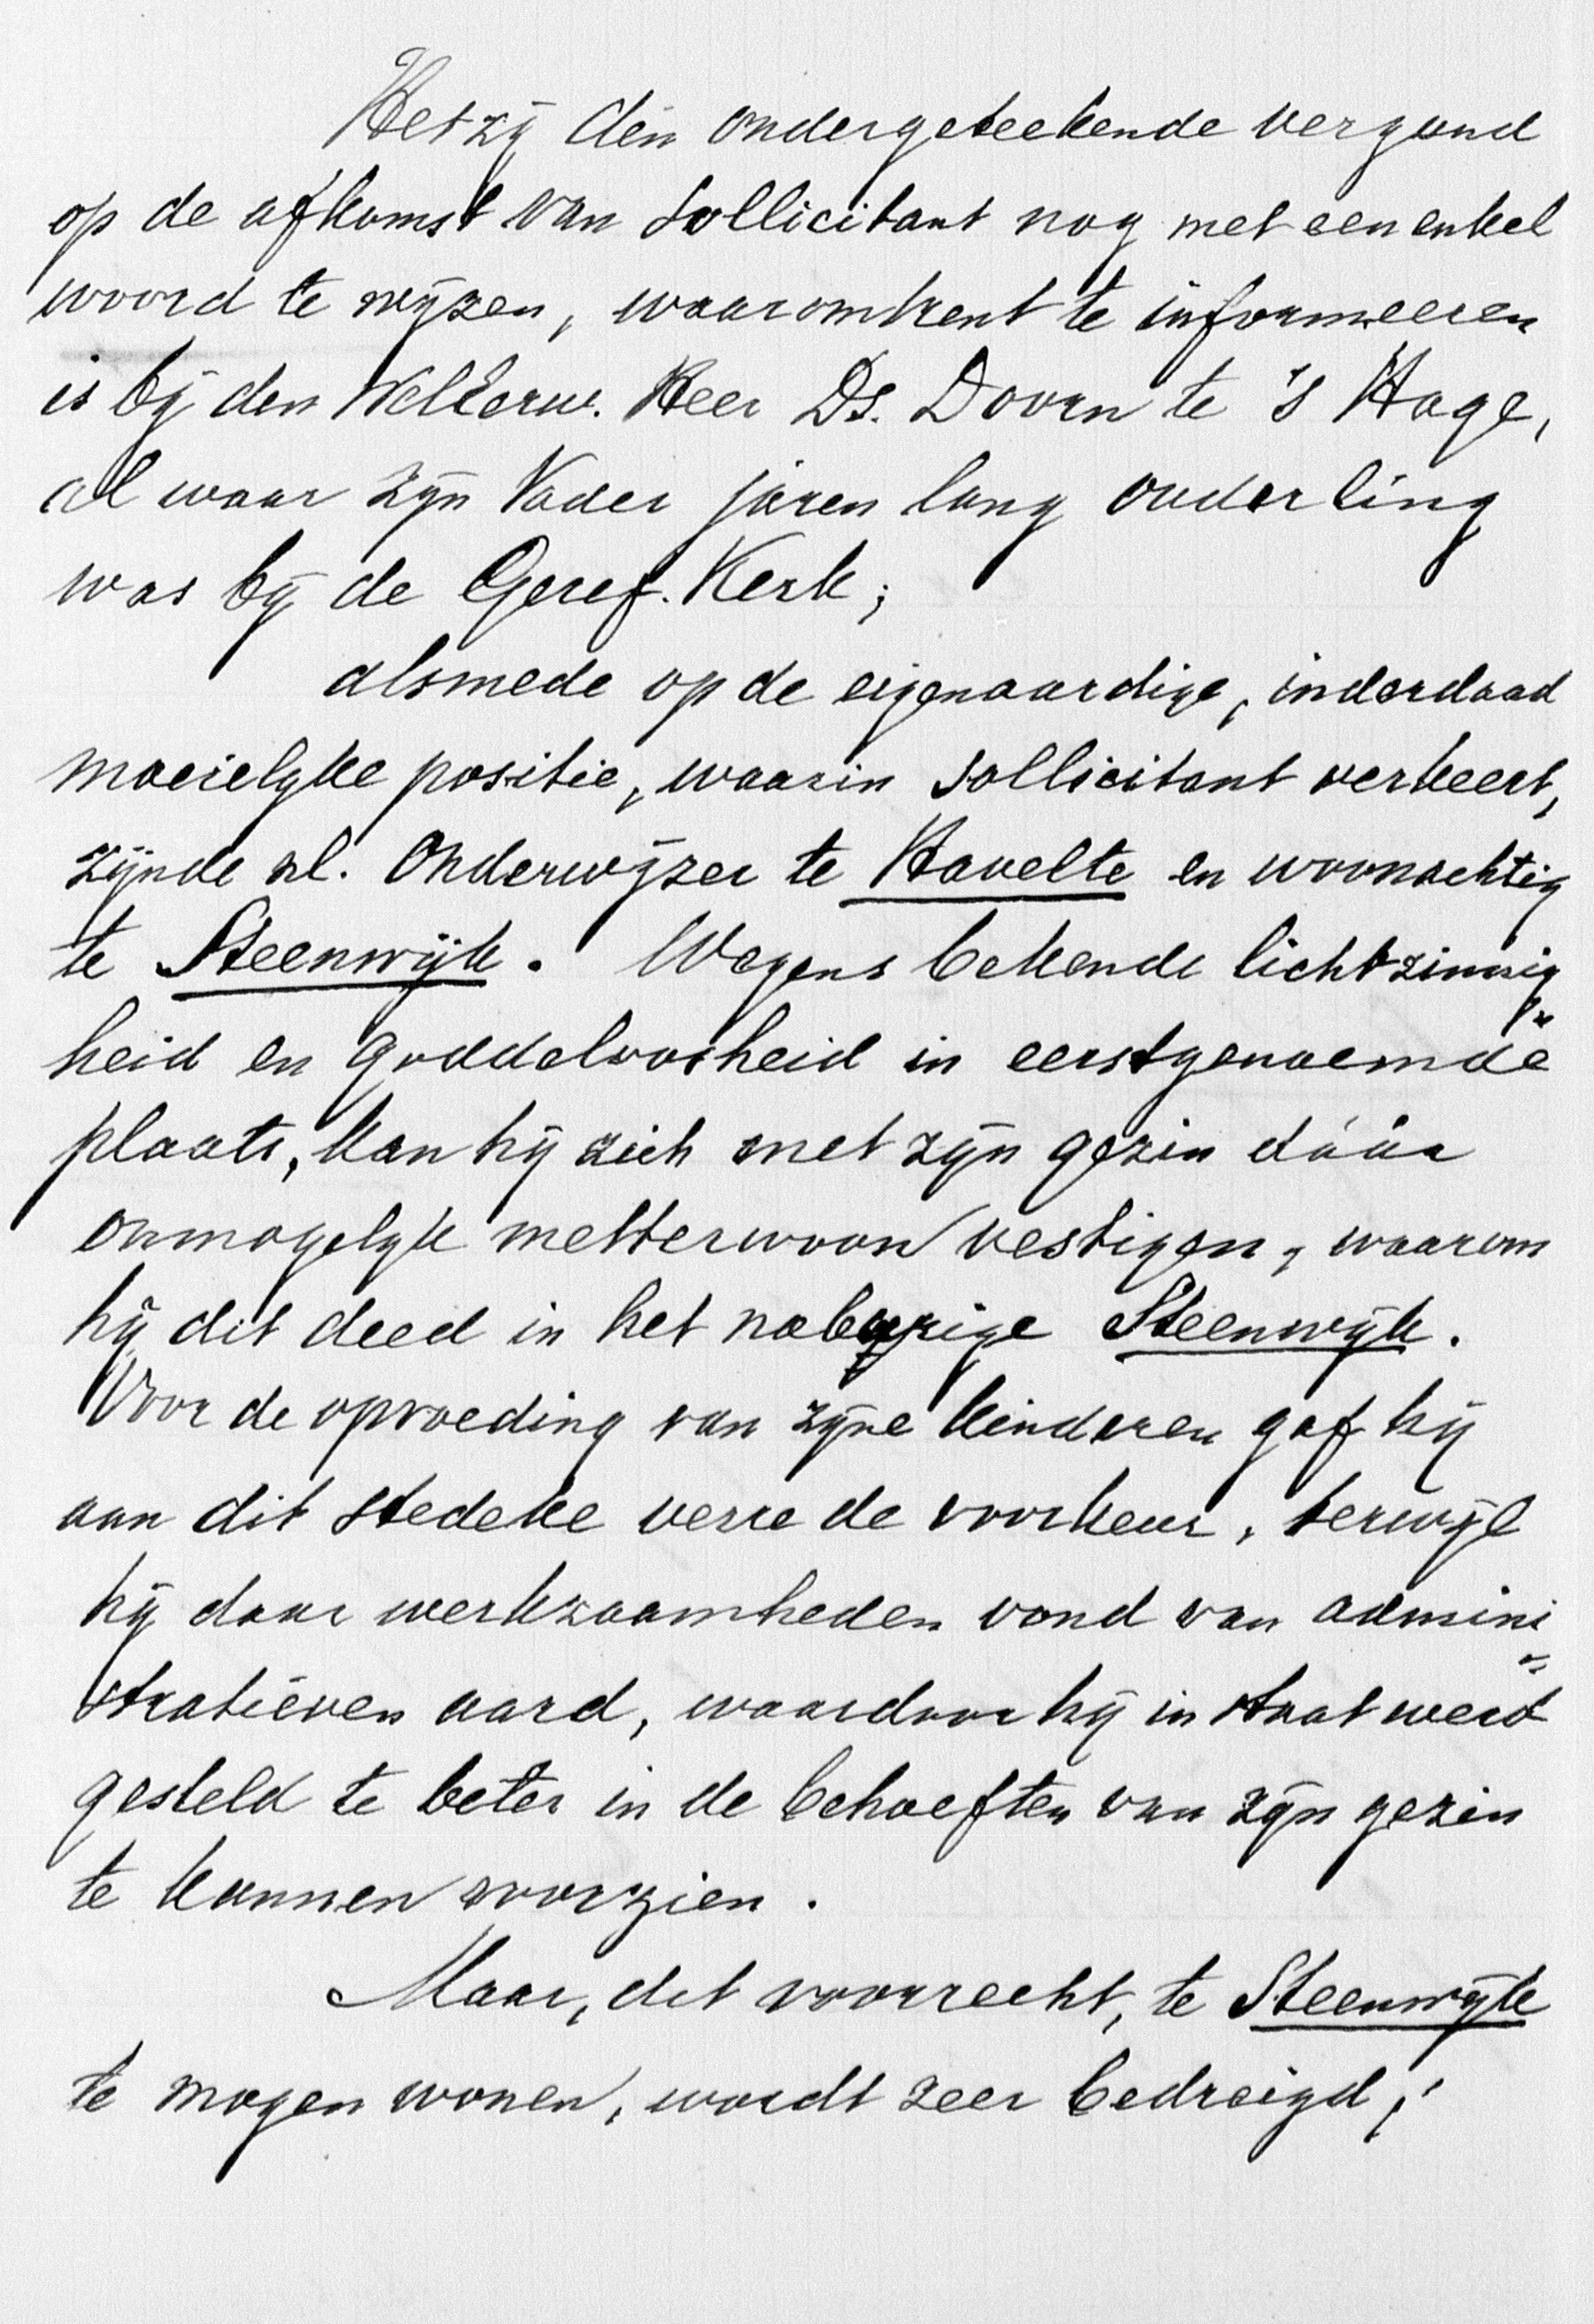 Het zij den ondergeteekende vergund
op de afkomst van sollicitant nog met een enkel
woord te wijzen, waaromtrent te informeeren
is bij den WelEerw. Heer Ds. Doorn te 's Hage,
al waar zijn Vader jaren lang ouderling
was bij de Geref. Kerk;
alsmede op de eigenaardige, inderdaad
moeielijke positie, waarin sollicitant verkeert,
zijnde nl. Onderwijzer te Havelte en woonachtig
te Steenwijk. Wegens bekende lichtzinnig=
heid en goddeloosheid in eerstgenoemde
plaats, kan hij zich met zijn gezin dáár
onmogelijk metterwoon vestigen, waarom
hij dit deed in het naburige Steenwijk.
Voor de opvoeding van zijne kinderen gaf hij
aan dit stedeke verre de voorkeur, terwijl
hij daar werkzaamheden vond van admini=
stratieven aard, waardoor hij in staat werd
gesteld te beter in de behoeften van zijn gezin
te kunnen voorzien.
Maar, dit voorrecht, te Steenwijk
te mogen wonen, wordt zeer bedreigd;